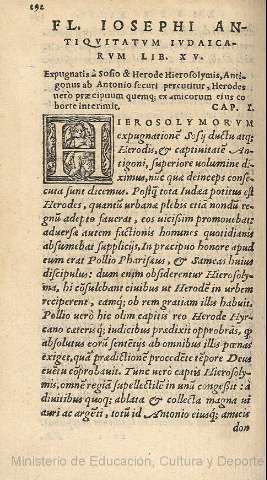 292
FL. IOSEPHI AN-
TIQVITATVM IVDAICA-
RVM LIB. XV.
Expugnatis à Sosio & Herode Hierosolymis, Anti-
gonus ab Antonio securi percutitur, Herodes
uerò præcipuum quemq; ex amicorum eius co
horte interimit. CAP. I.
HIEROSOLYMORVM
expugnationē Sosij ductu atq;
Herodis, & captiuitatē An-
tigoni, superiore uolumine di-
ximus, nūc quæ deinceps conse-
cuta sunt dicemus. Postq̃ tota Iudæa potitus est
Herodes, quantū urbana plebis etiā nondū re-
gnū adepto fauerat, eos uicissim promouebat:
aduersæ autem factionis homines quotidianis
absumebat supplicijs. In præcipuo honore apud
eum erat Pollio Pharisæus, & Sameas huius
discipulus: dum enim obsiderentur Hierosoly-
ma, hi cōsulebant ciuibus ut Herodē in urbem
reciperent, eamq; ob rem gratiam illis habuit.
Pollio uerò hic olim capitis reo Herode Hyr-
cano caterisq; iudicibus prædixit opprobrās, q̃
absolutus eorū sententijs ab omnibus illis pœnas
exiget, quā prædictionē procedēte tēpore Deus
euētu cōprobauit. Tunc uerò captis Hierosoly-
mis, omnē regiā supellectilē in unū congeßit: à
diuitibus quoq; ablata & collecta magna ui
auri ac argēti, totū id Antonio eiusq; amicis
don
Ministerio de Educación, Cultura y Deporte